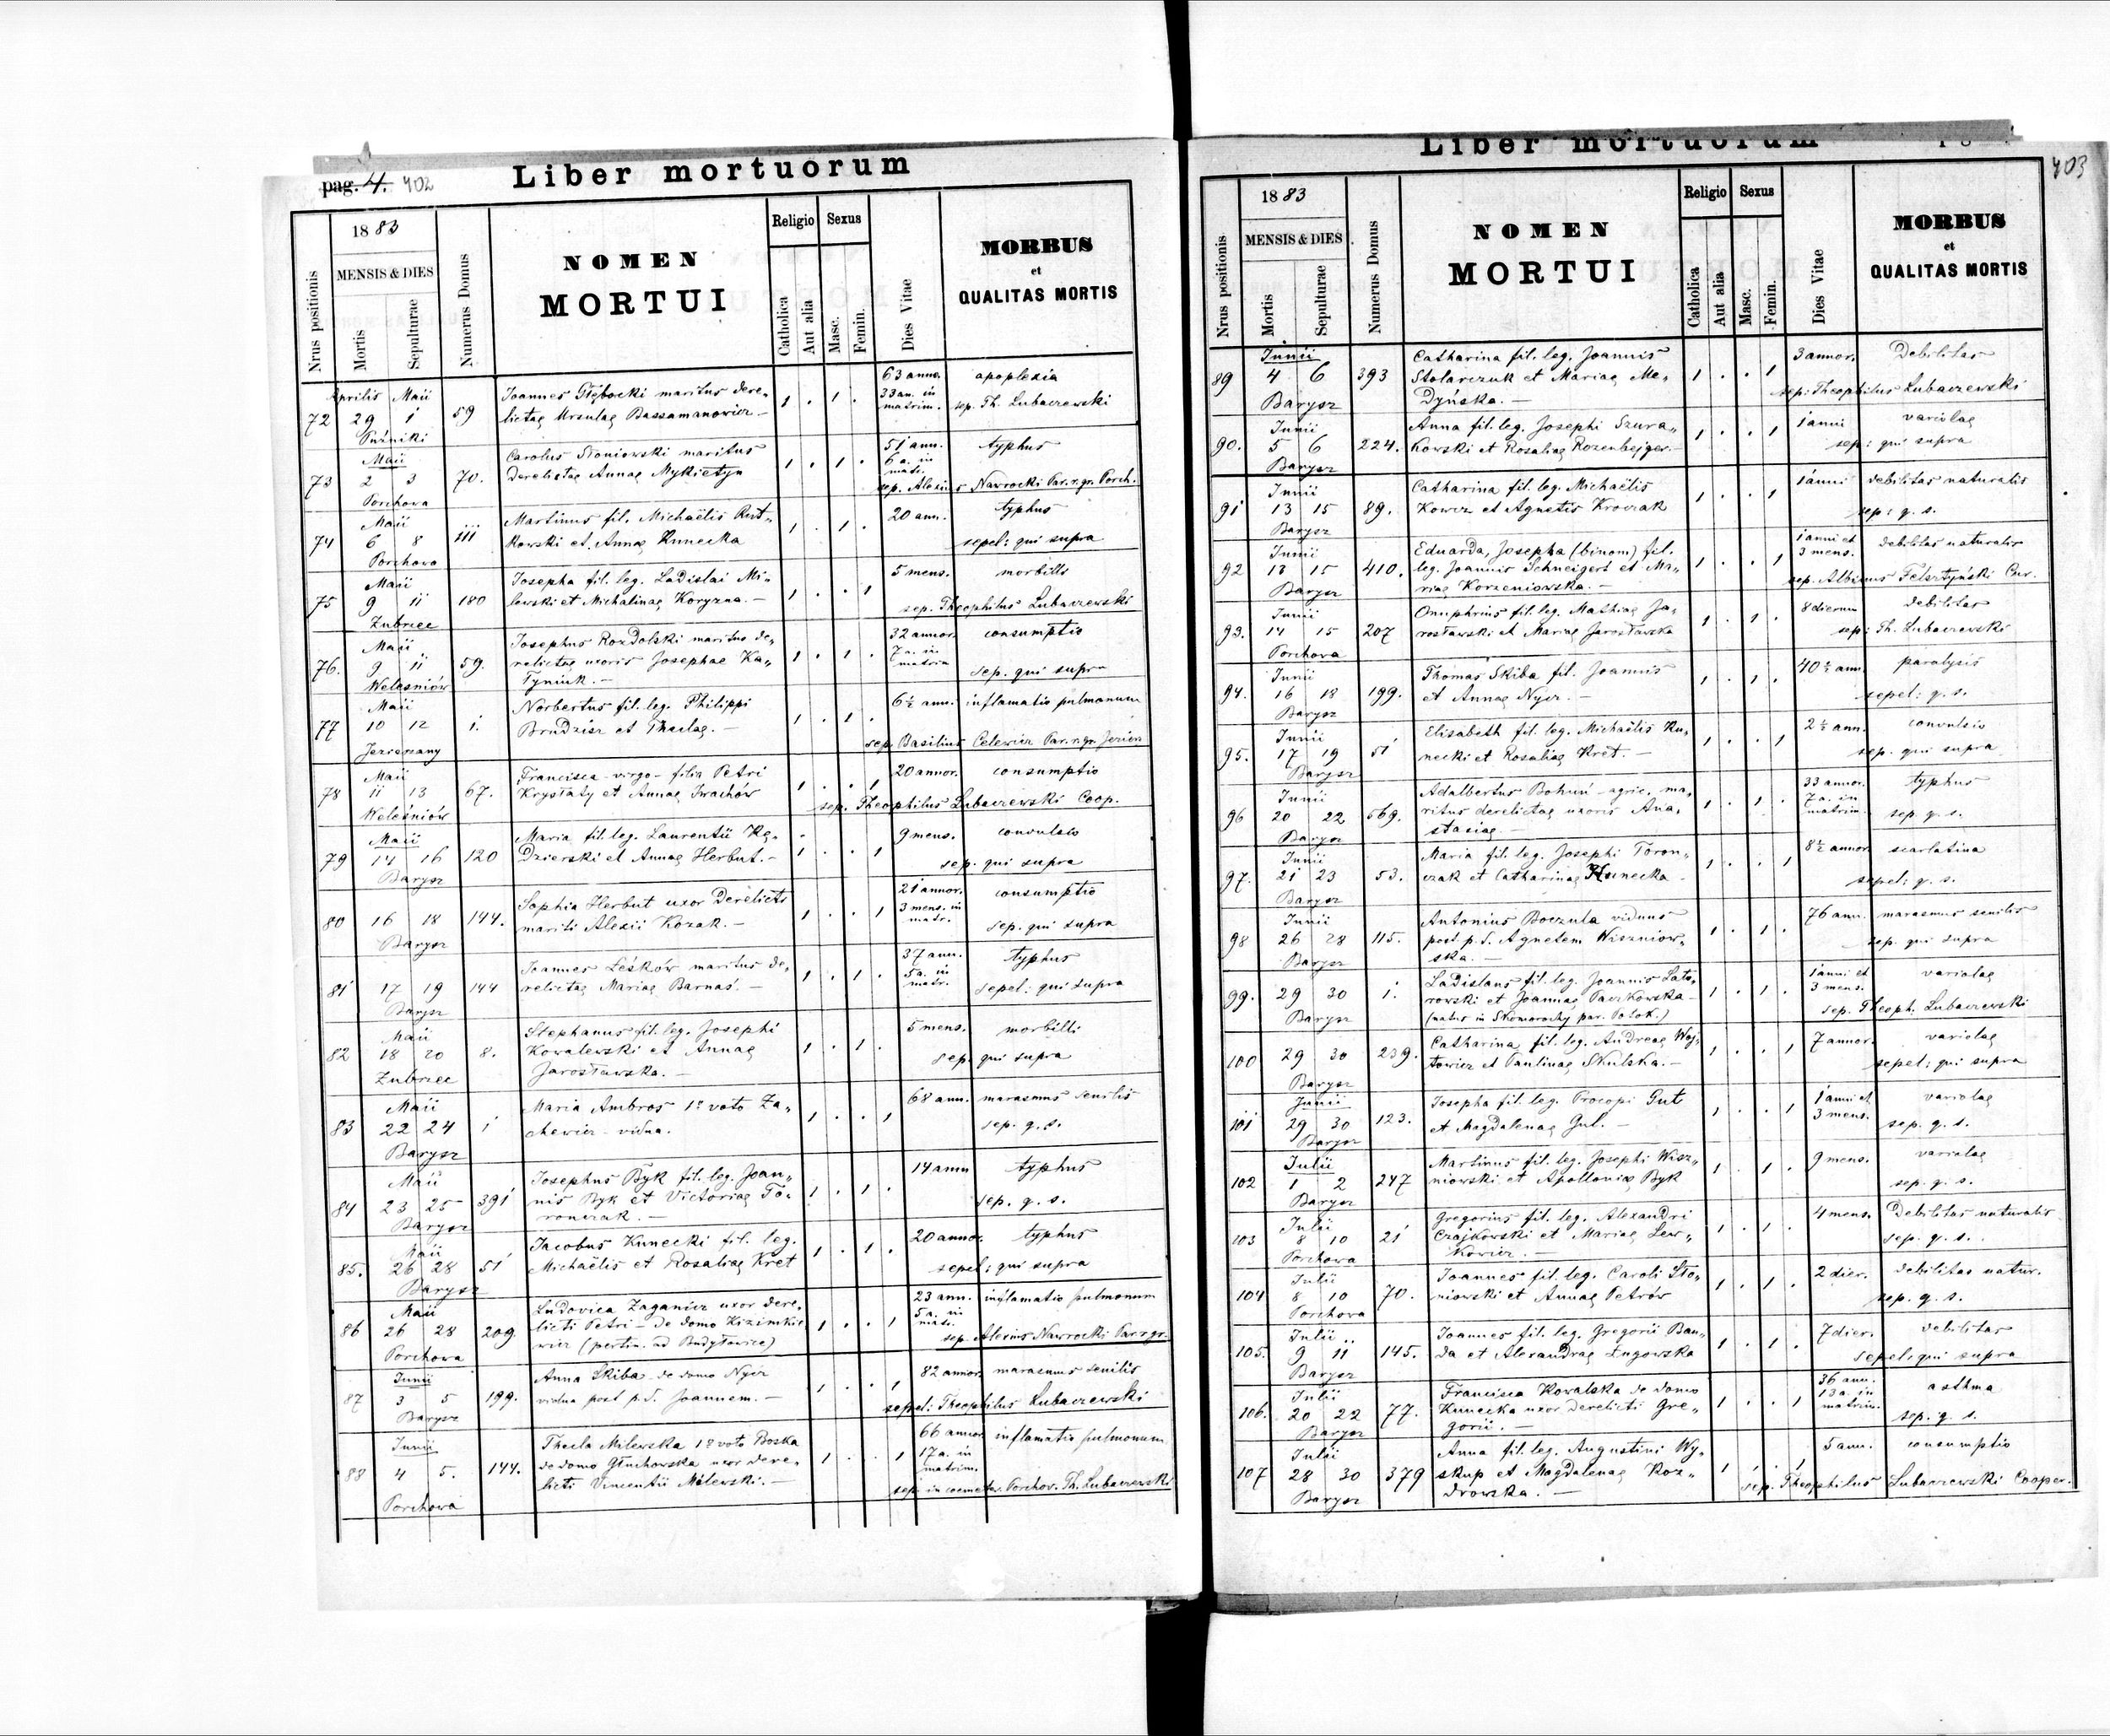 pag. 4. 402
Liber mortuorum
Nrus positionis
1883
MENSIS & DIES
Mortis
Sepulturae
Numerus Domus
NOMEN
MORTUI
Religio
Catholica
Aut alia
Sexus
Masc.
Femin.
Dies Vitae
MORBUS
et
QUALITAS MORTIS
Aprilis Maii Joannes Głębocki maritus dere„ 63 anno. apoplexia
72 29 1 59 lictae Ursulae Bassamanowicz – 1 . 1 . 33 an. in matrim. sep. Th. Lubaczewski
Puźniki
Maii Carolus Słoniowski maritus 51 ann. typhus
73 2 3 70. derelictae Annae Mykietyn 1 . 1 . 6 a. in matr.
Porchova sep. Alexius Nawrocki Par. r. gr. Porch.
Maii Martinus fil. Michaëlis Rut„ 20 ann. typhus
74 6 8 111 kowski et Annae Kunecka 1 . 1 . sepel: qui supra
Porchova
Maii Josepha fil. leg. Ladislai Mi„ 5 mens. morbilli
75 9 11 180 lewski et Michalinae Koryzna. – 1 . . 1 sep. Theophilus Lubaczewski
Zubrzec
Maii Josephus Rozdolski maritus de„ 32 annor. consumptio
76. 9 11 59. relictae uxoris Josephae Ka„ 1 . 1 . 7 a. in matrim
Weleśniów Tyniuk. – sep. qui supra
Maii Norbertus fil. leg. Philippi 6½ ann. inflamatio pulmonum
77 10 12 1. Brudzisz et Theclae. – 1 . 1 .
Jezierzany sep. Basilius Celewicz Par. r. gr. Jezierz
Maii Francisca – virgo – filia Petri 20 annor. consumptio
78 11 13 67. Kryształy et Annae Iwachów 1 . . 1
Weleśniów sep. Theophilus Lubaczewski Coop.
Maii Maria fil. leg. Laurentii Kę„ 9 mens. convulsio
79 14 16 120 dzierski et Annae Herbut. – 1 . . 1 sep. qui supra
Barysz
Sophia Herbut uxor derelicti 21 annor. consumptio
80 16 18 144. mariti Alexii Kozak. – 1 . . 1 3 mens. in matr. sep. qui supra
Barysz
Joannes Leśków maritus de„ 37 ann. typhus
81 17 19 144 relictae Mariae Barnaś. – 1 . 1 . 5 a. in matr. sepel: qui supra
Barysz
Maii Stephanus fil. leg. Josephi 5 mens. morbilli
82 18 20 8. Kowalewski et Annae 1 . 1 . sep. qui supra
Zubrzec Jarosławska. –
Maii Maria Ambros 1º voto Za„ 68 ann. marasmus senilis
83 22 24 1 chewicz – vidua. 1 . . 1 sep. q. s.
Barysz
Maii Josephus Byk fil. leg. Joan„ 14 ann typhus
84 23 25 391 nis Byk et Victoriae To„ 1 . 1 . sep. q. s.
Barysz ronczak. –
Maii Jacobus Kunecki fil. leg. 20 annor. typhus
85. 26 28 51 Michaëlis et Rosaliae Kret 1 . 1 . sepel: qui supra
Barysz
Maii Ludovica Zaganicz uxor dere„ 23 ann. inflamatio pulmonum
86 26 28 209. licti Petri – de domo Kizimkie 1 . . 1 5 a. in matr.
Porchova wicz (pertin. ad Budyłowice) sep. Alexius Nawrocki Par. r. gr.
Junii Anna Skiba de domo Nycz 82 annor. marasmus senilis
87 3 5 199. vidua post p. d. Joannem. – 1 . . 1
Barysz sepel: Theophilus Lubaczewski
Junii Thecla Milewska 1º voto Boska 66 annor inflamatio pulmonum
88 4 5. 144. de domo Głuchowska uxor dere„ 1 . . 1 17 a. in matrim.
Porchova licti Vincentii Milewski. – sep. in coemeter. Porchov. Th. Lubaczewski
Liber mortuorum
403
Nrus positionis
1883
MENSIS & DIES
Mortis
Sepulturae
Numerus Domus
NOMEN
MORTUI
Religio
Catholica
Aut alia
Sexus
Masc.
Femin.
Dies Vitae
MORBUS
et
QUALITAS MORTIS
Junii Catharina fil. leg. Joannis 3 annor. debilitas
89 4 6 393 Stolarczuk et Mariae Me„ 1 . . 1
Barysz dyńska. – sep: Theophilus Lubaczewski
Junii Anna fil. leg. Josephi Szura„ 1 anni variolae
90. 5 6 224. kowski et Rosaliae Rozenbejger. – 1 . . 1 sep: qui supra
Barysz
Junii Catharina fil. leg. Michaëlis 1 anni debilitas naturalis
91 13 15 89. Kowcz et Agnetis Kroczak 1 . . 1 sep: q. s.
Barysz
Junii Eduarda, Josepha (binom) fil. 1 anni et 3 mens. debilitas naturalis
92 13 15 410. leg. Joannis Schneigert et Ma„ 1 . . 1
Barysz riae Korzeniowska. – sep. Albinus Felsztyński Cur.
Junii Onuphrius fil. leg. Mathiae Ja„ 8 dierum debilitas
93. 14 15 207 rosławski et Mariae Jarosławska 1 . 1 . sep: Th. Lubaczewski
Porchova
Junii Thomas Skiba fil. Joannis 40½ ann. paralysis
94. 16 18 199. et Annae Nycz. – 1 . 1 . sepel: q. s.
Barysz
Junii Elisabeth fil. leg. Michaëlis Ku„ 2½ ann. convulsio
95. 17 19 51 necki et Rosaliae Kret. – 1 . . 1 sep. qui supra
Barysz
Junii Adalbertus Bohuń – agric. ma„ 33 annor. typhus
96 20 22 569. ritus derelictae uxoris Ana„ 1 . 1 . 7 a. in matrim. sep. q. s.
Barysz stasiae. –
Junii Maria fil. leg. Josephi Toron„ 8½ annor. scarlatina
97. 21 23 53. czak et Catharinae Kunecka 1 . . 1 sepel: q. s.
Barysz
Junii Antonius Boczula viduus 76 ann. marasmus senilis
98 26 28 115. post p. d. Agnetem Wiszniow„ 1 . 1 . sep. qui supra
Barysz ska. –
Ladislaus fil. leg. Joannis Lato„ 1 anni et 3 mens. variolae
99. 29 30 1. rowski et Joannae Paczkowska – 1 . 1 .
Barysz (natus in Skomorochy par. Potok.) sep. Theoph. Lubaczewski
Catharina fil. leg. Andreae Woj„ 7 annor. variolae
100 29 30 239. towicz et Paulinae Skulska. – 1 . . 1 sepel: qui supra
Barysz
Junii Josepha fil. leg. Procopi Gut 1 anni et 3 mens. variolae
101 29 30 123. et Magdalenae Gul. – 1 . . 1 sep. q. s.
Barysz
Julii Martinus fil. leg. Josephi Wisz„ 9 mens. variolae
102 1 2 247 niowski et Apolloniae Byk 1 . 1 . sep. q. s.
Barysz
Julii Gregorius fil. leg. Alexandri 4 mens. Debilitas naturalis
103 8 10 21 Czajkowski et Mariae Lew„ 1 . 1 . sep. q. s.
Porchova kowicz. –
Julii Joannes fil. leg. Caroli Sło„ 2 dier. debilitas natur.
104 8 10 70. niowski et Annae Petrów 1 . 1 . sep. q. s.
Porchova
Julii Joannes fil. leg. Gregorii Ban„ 7 dier. debilitas
105. 9 11 145. da et Alexandrae Ługowska 1 . 1 . sepel: qui supra
Barysz
Julii Francisca Kowalska de domo 36 ann. asthma
106. 20 22 77. Kunecka uxor derelicti Gre„ 1 . . 1 13 a. in matrim. sep. q. s.
Barysz gorii. –
Julii Anna fil. leg. Augustini Wy„ 5 ann. consumptio
107 28 30 379 skup et Magdalenae Koz„ 1 . . 1
Barysz drowska. – sep. Theophilus Lubaczewski Cooper.